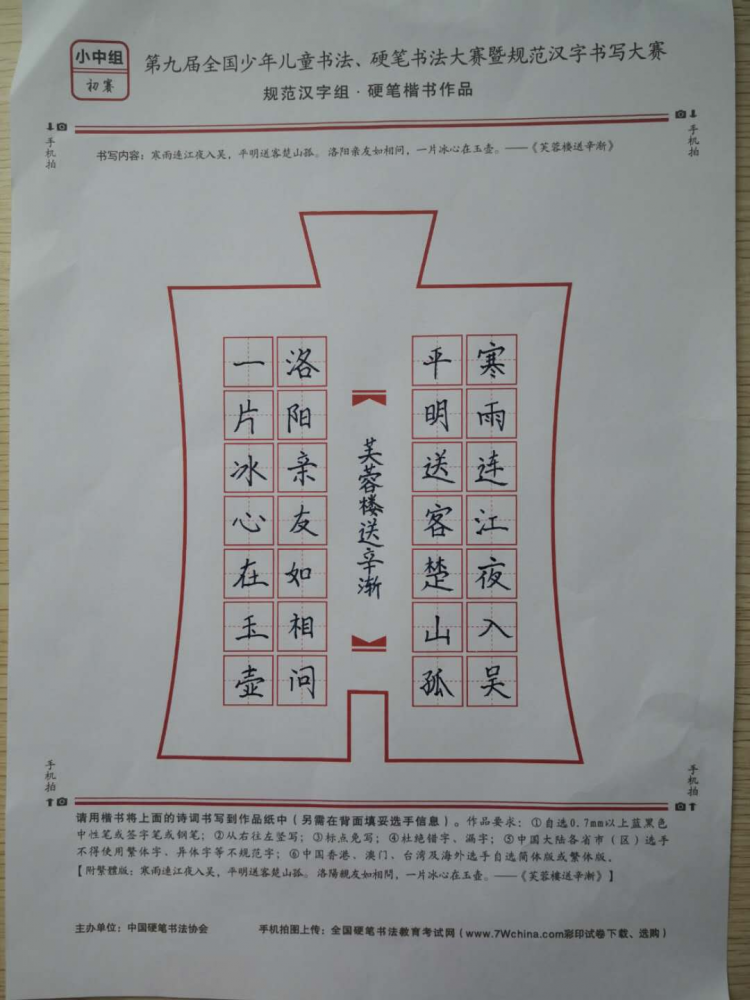 小中组
初赛
第九届全国少年儿童书法、硬笔书法大赛暨规范汉字书写大赛
规范汉字组·硬笔楷书作品
手机拍
手机拍
书写内容：寒雨连江夜入吴，平明送客楚山孤。洛阳亲友如相问，一片冰心在玉壶。——《芙蓉楼送辛渐》
寒雨连江夜入吴
平明送客楚山孤
芙蓉楼送辛渐
洛阳亲友如相问
一片冰心在玉壶
手机拍
手机拍
请用楷书将上面的诗词书写到作品纸中（另需在背面填妥选手信息）。作品要求：①自选0.7mm以上蓝黑色
中性笔或签字笔或钢笔；②从右往左竖写；③标点免写；④杜绝错字、漏字；⑤中国大陆各省市（区）选手
不得使用繁体字、异体字等不规范字；⑥中国香港、澳门、台湾及海外选手自选简体版或繁体版，
【附繁體版：寒雨連江夜入吳，平明送客楚山孤。洛陽親友如相問，一片冰心在玉壺。——《芙蓉樓送辛漸》】
主办单位：中国硬笔书法协会
手机拍图上传：全国硬笔书法教育考试网（www.7Wchina.com彩印试卷下载、选购）